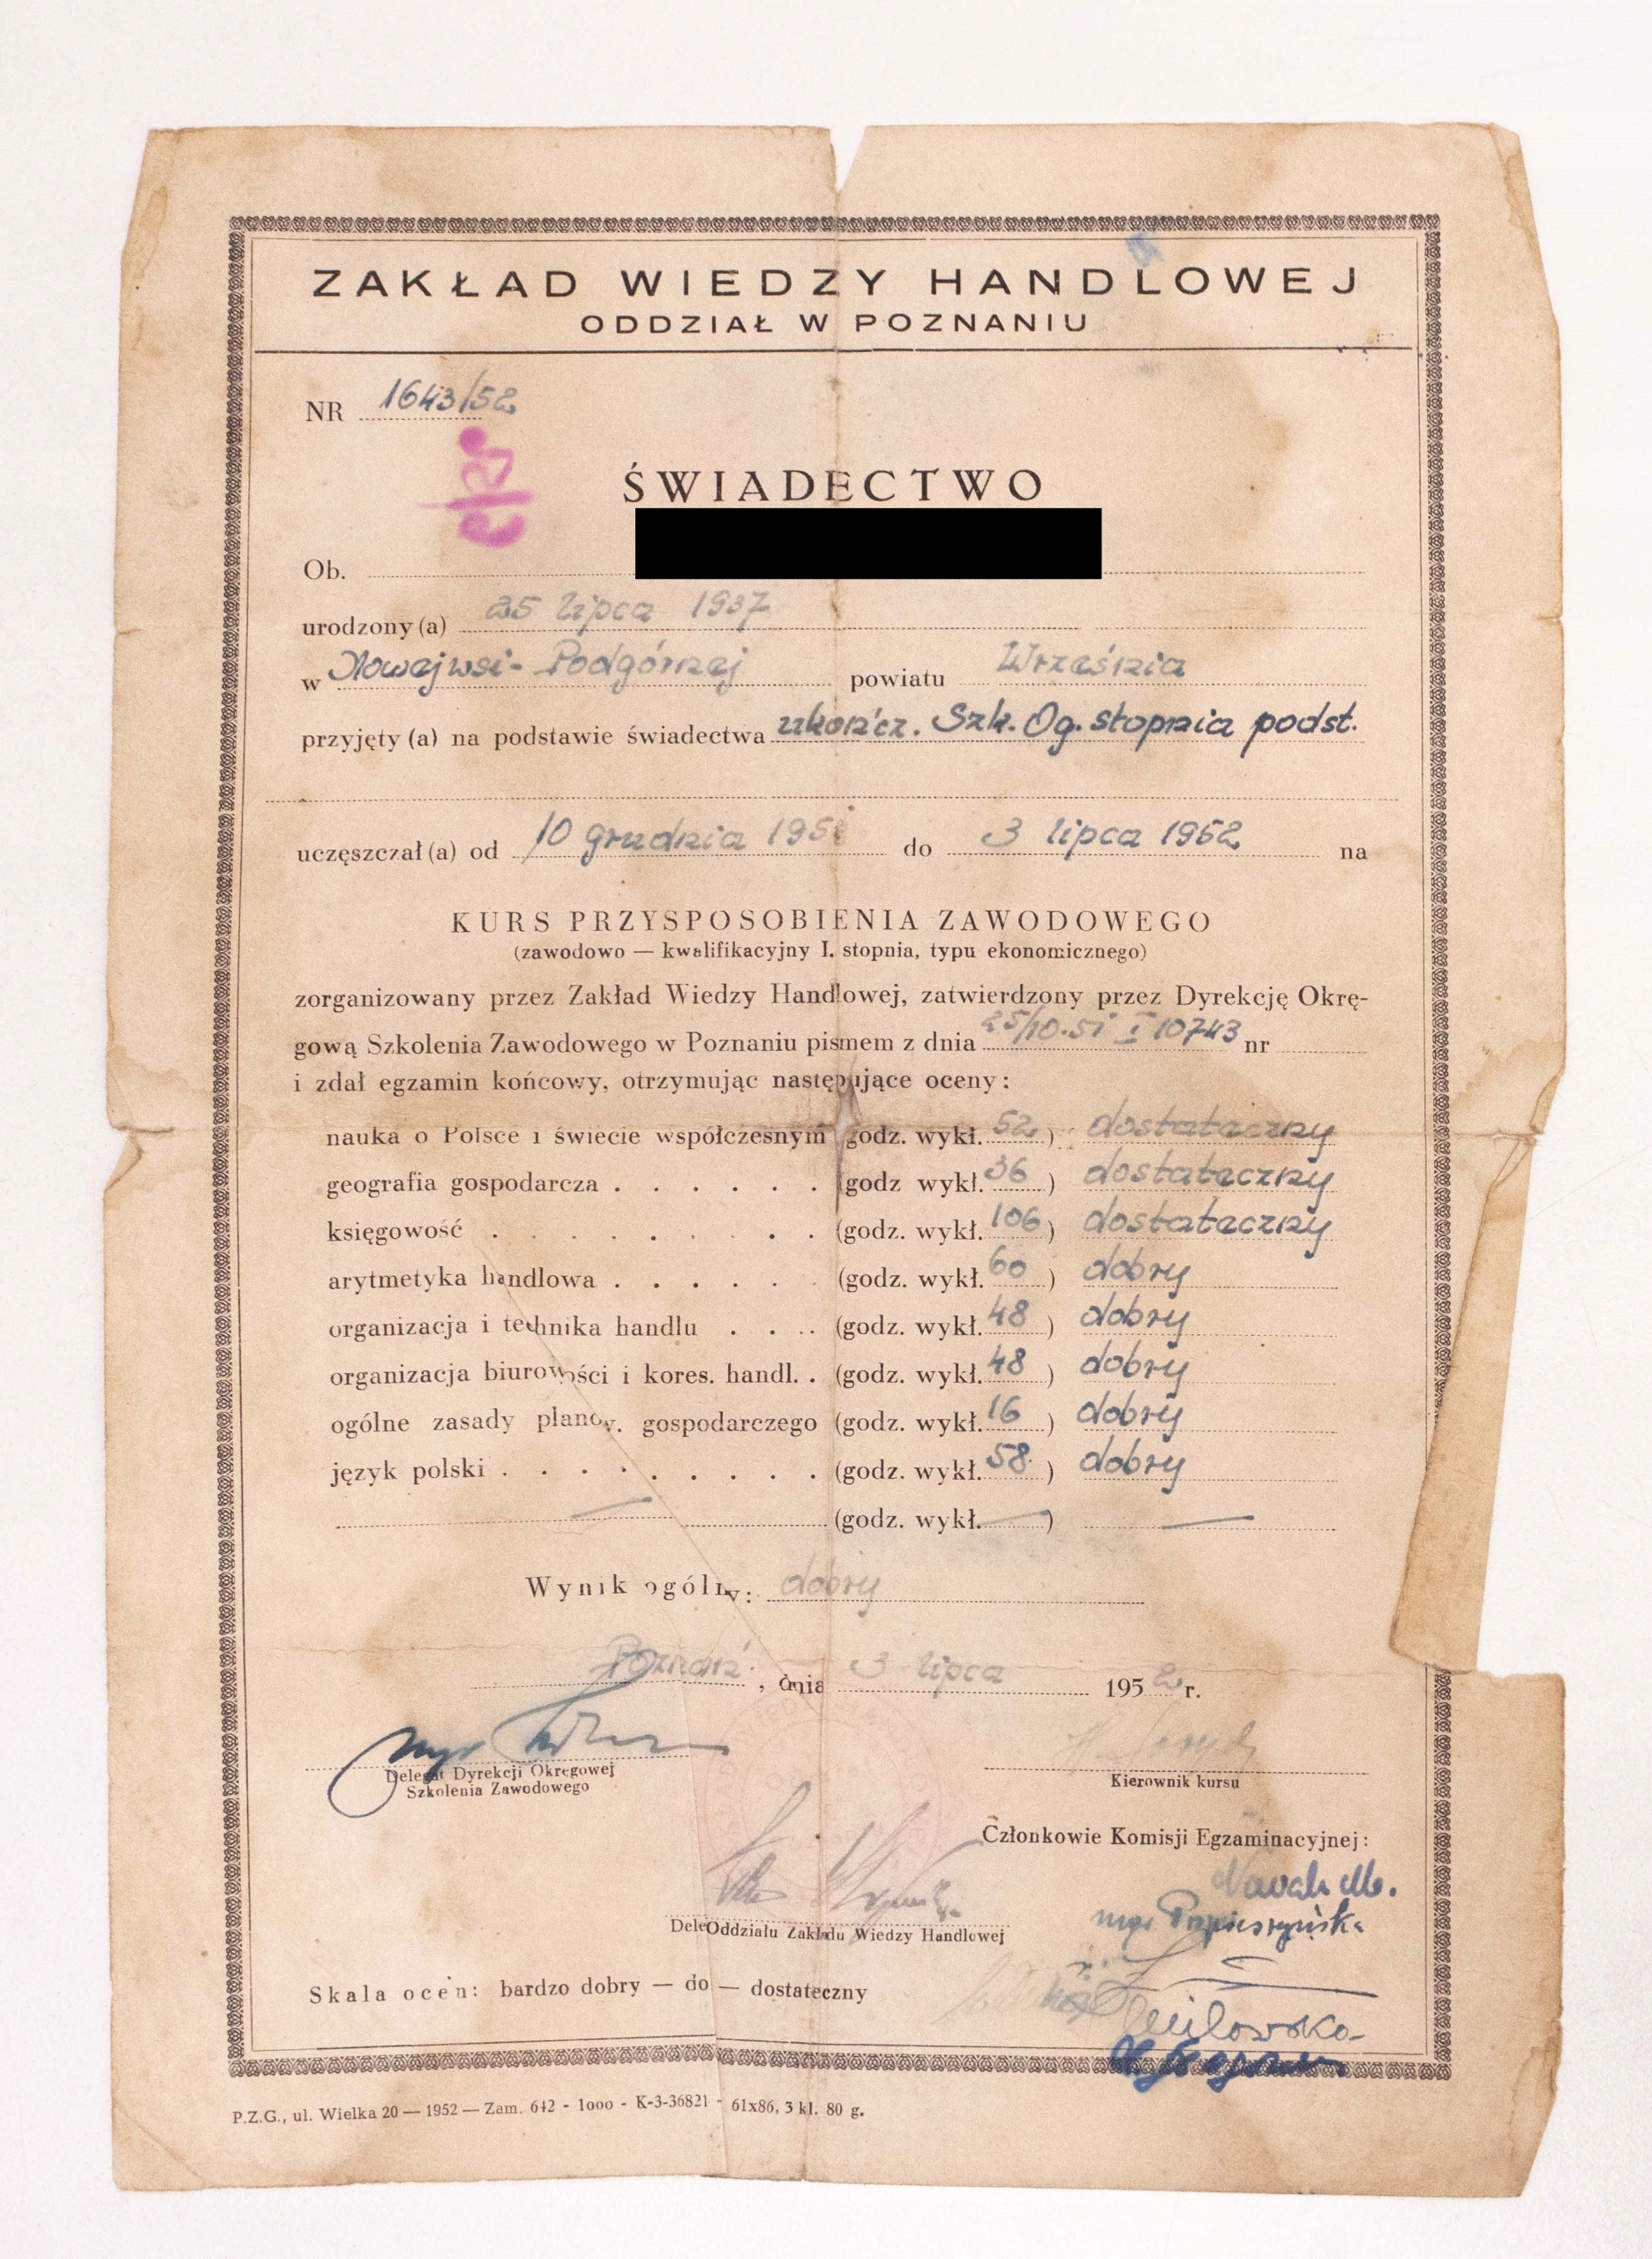 ZAKŁAD WIEDZY HANDLOWEJ
ODDZIAŁ W POZNANIU
NR 1643/52
ŚWIADECTWO
Ob.
urodzony (a) 25 lipca 1937
w Nowejwsi-Podgórnej powiatu Września
przyjęty (a) na podstawie świadectwa ukończ. Szk. Og. stopnia podst.
uczęszczał (a) od 10 grudnia 195 do 3 lipca 1952 na
KURS PRZYSPOSOBIENIA ZAWODOWEGO
(zawodowo — kwalifikacyjny I. stopnia, typu ekonomicznego)
zorganizowany przez Zakład Wiedzy Handlowej, zatwierdzony przez Dyrekcję Okrę-
gową Szkolenia Zawodowego w Poznaniu pismem z dnia 25/10.51 I 10743 nr
i zdał egzamin końcowy, otrzymując następujące oceny:
nauka o Polsce i świecie współczesnym (godz. wykł. 52) dostateczny
geografia gospodarcza . . . . . . (godz wykł. 36) dostateczny
księgowość . . . . . . . . . (godz. wykł. 106) dostateczny
arytmetyka handlowa . . . . . . (godz. wykł. 60) dobry
organizacja i technika handlu . . . . (godz. wykł. 48) dobry
organizacja biurowości i kores. handl. . (godz. wykł. 48) dobry
ogólne zasady planow. gospodarczego (godz. wykł. 16) dobry
język polski . . . . . . . . . (godz. wykł. 58) dobry
— (godz. wykł. —) —
Wynik ogólny: dobry
Poznań, dnia 3 lipca 1952 r.
mgr
Delegat Dyrekcji Okręgowej
Szkolenia Zawodowego
Kierownik kursu
Członkowie Komisji Egzaminacyjnej:
Nowak M.
mgr
Dele Oddziału Zakładu Wiedzy Handlowej
Skala ocen: bardzo dobry — do — dostateczny
P.Z.G., ul. Wielka 20 — 1952 — Zam. 642 - 1000 - K-3-36821 - 61x86, 3 kl. 80 g.